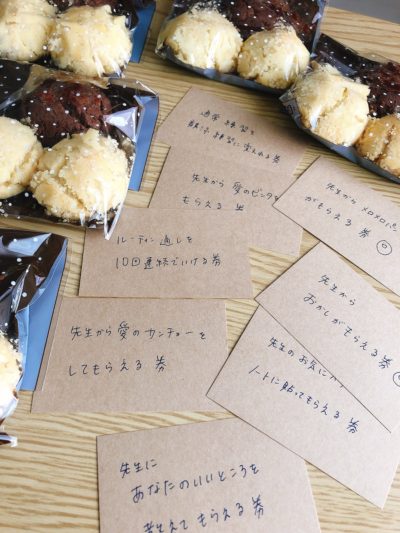 通常練習を
練習に変えれる券
先生から愛のビンタを
もらえる券
先生からメロメロ
がもらえる券
ルーティン通しを
10回連続でいける券
先生から
おかしがもらえる券
先生から愛のカンチョーを
してもらえる券
先生のお気に入り
ノートに貼ってもらえる券
先生に
あなたのいいところを
教えてもらえる券